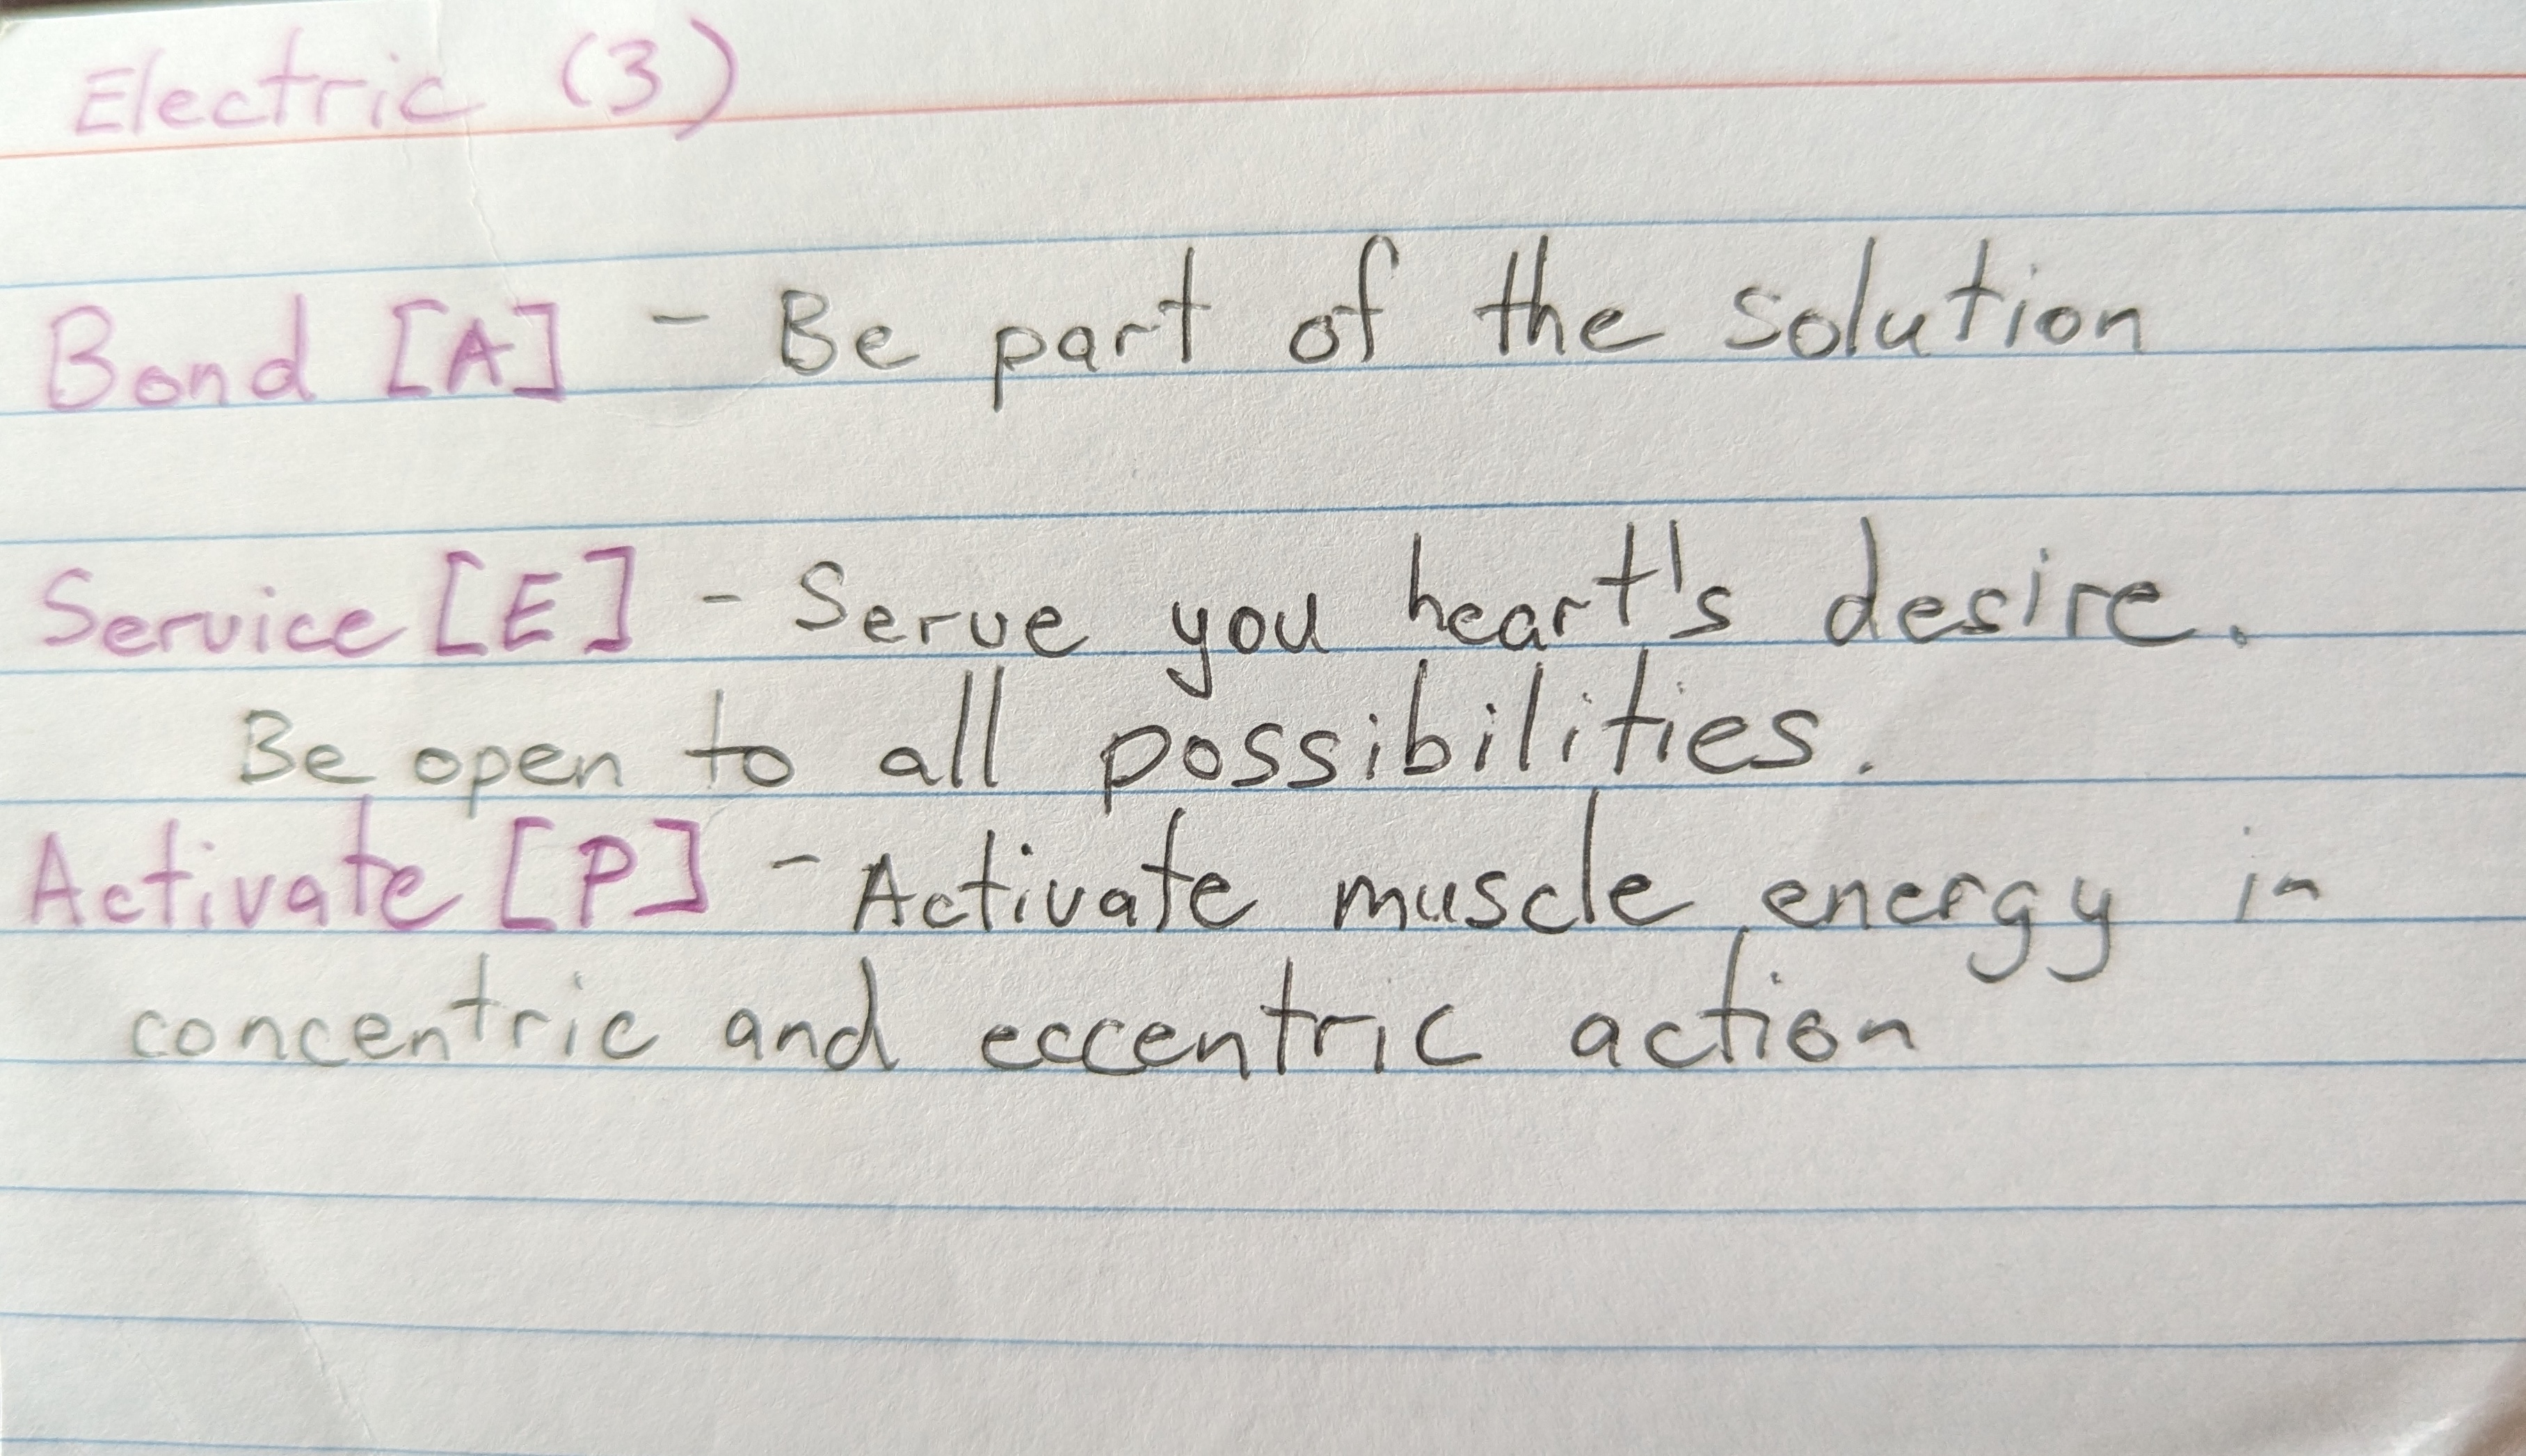 Electric (3)
Bond [A] - Be part of the solution
Service [E] - Serve you heart's desire.
Be open to all possibilities.
Activate [P] - Activate muscle energy in
concentric and eccentric action